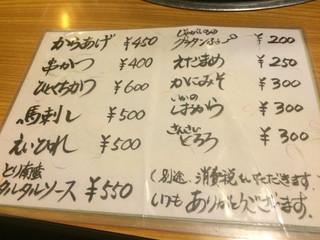 からあげ ¥450
串かつ ¥400
ひとくちかつ ¥600
馬刺し ¥500
えいひれ ¥500
とり南蛮
タルタルソース ¥550
じゃがいもの
グラタンふう ¥200
えだまめ ¥250
かにみそ ¥300
いかの
しおから ¥300
とろろ ¥300
(別途、消費税をいただきます。
いつもありがとうございます。